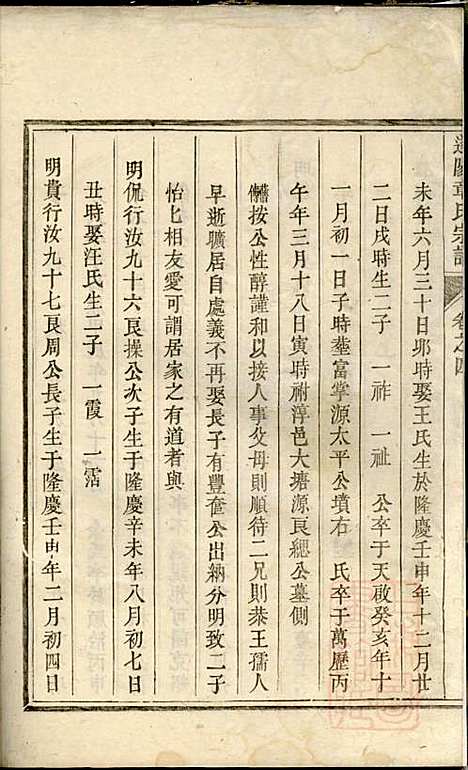 遂閣章氏宗譜 卷之四
未年六月三十日卯時娶王氏生於隆慶壬申年十二月廿
二日戌時生二子 一祚 一祉 公卒于天啟癸亥年十
一月初一日子時塟富掌源太平公墳右 氏卒于萬歷丙
午年三月十八日寅時祔淳邑大塘源良總公墓側
按公性醇謹和以接人事父母則順待二兄則恭王孺人
早逝曠居自處義不再娶長子有豐奩公出納分明致二子
怡怡相友愛可謂居家之有道者與
明侃行汝九十六良操公次子生于隆慶辛未年八月初七日
丑時娶汪氏生二子 一霞 一霑
明貴行汝九十七良周公長子生于隆慶壬申年二月初四日